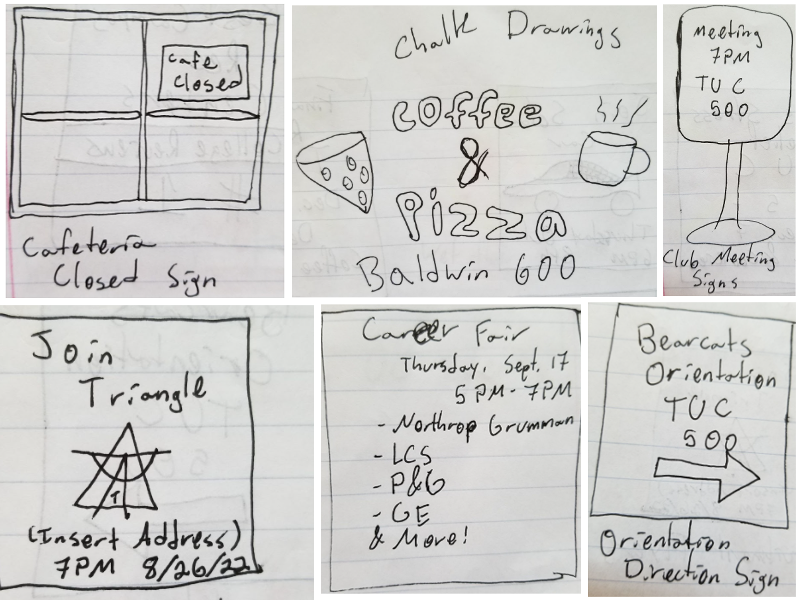 Cafe
Closed
Cafeteria
Closed Sign
Chalk Drawings
Coffee
&
Pizza
Baldwin 600
Meeting
7PM
TUC
500
Club Meeting
Signs
Join
Triangle
T
(Insert Address)
7PM 8/26/22
Career Fair
Thursday, Sept. 17
5PM-7PM
- Northrop Grumman
- LCS
- P&G
- GE
& More!
Bearcats
Orientation
TUC
500
Orientation
Direction Sign